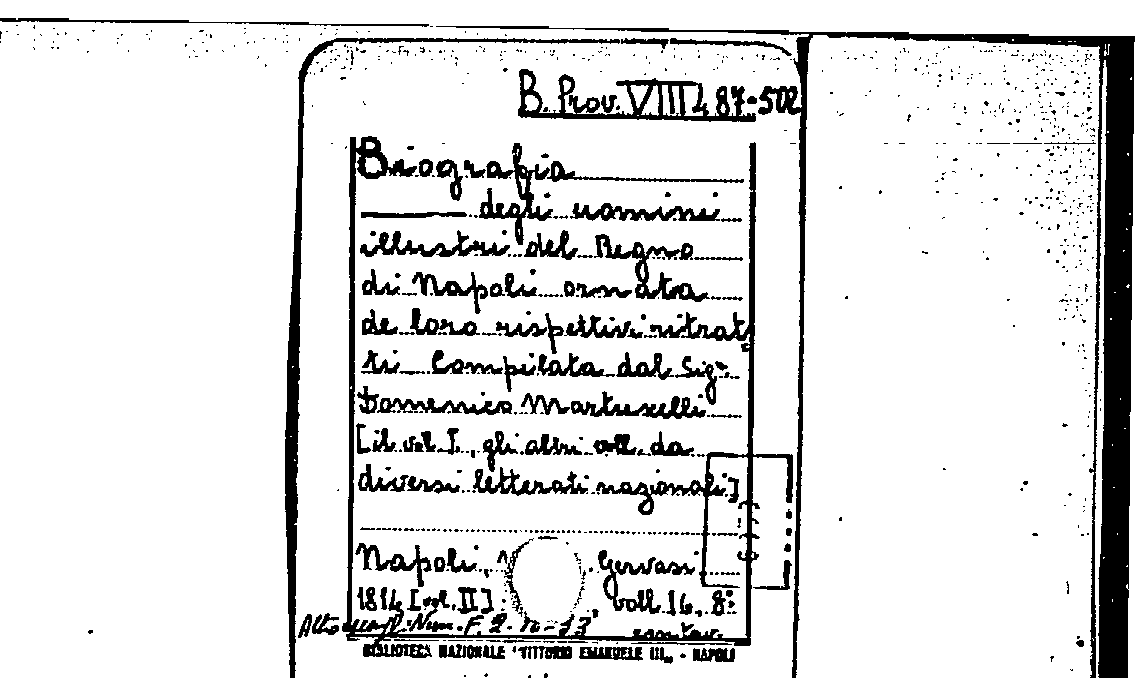 B. Prov. VIII 487-502
Biografia
degli uomini
illustri del Regno
di Napoli ornata
de loro rispettivi ritrat
ti Compilata dal Sigr.
Domenico Martuscelli
[il vol. I., gli altri voll. da
diversi letterati nazionali]
Napoli, . Gervasi
1814 [vol. II] , voll. 16, 8°.
Num. F. 2. n-13
BIBLIOTECA NAZIONALE "VITTORIO EMANUELE III„ - NAPOLI